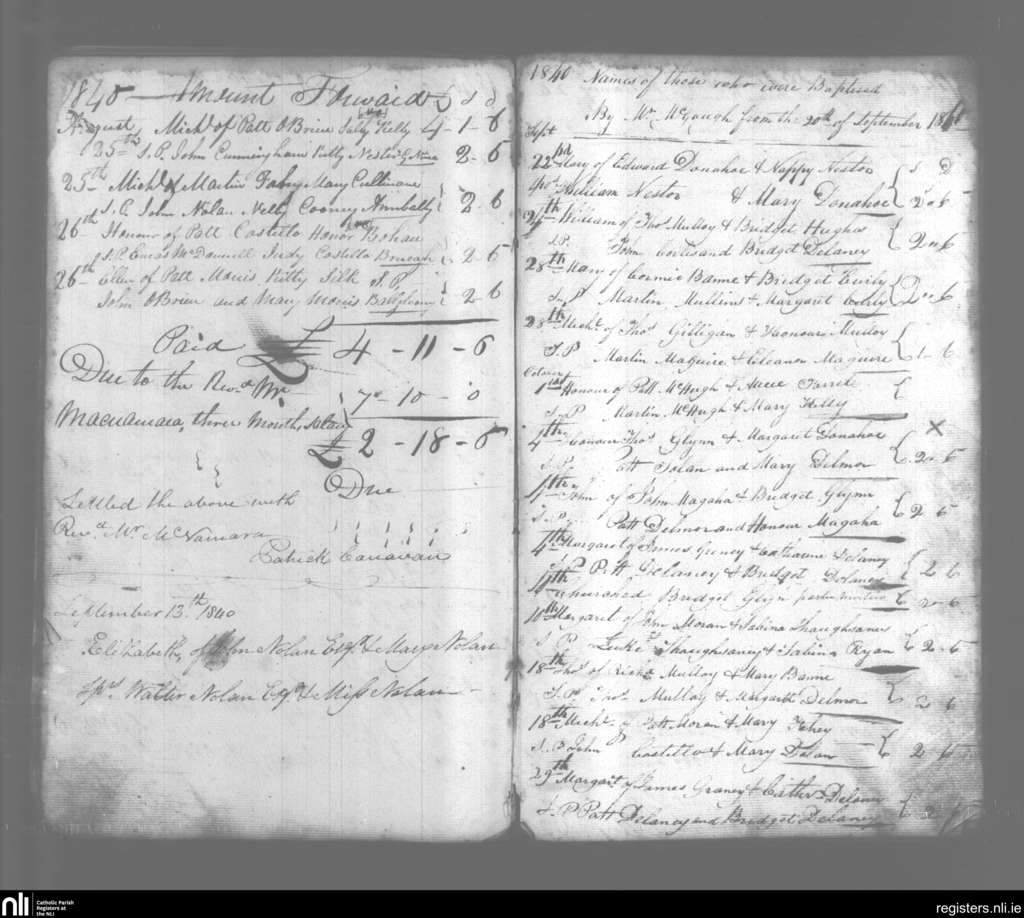 1840 — Amount Forward £ s d
August Michl of Patt O Brien Sally Kelly 4 - 1 - 6
25th S.P. John Cunningham Kitty Nestor 2 - 6
25th Michl of Martin Fahy Mary Cullinane
S.P. John Nolan Nelly Cooney 2 - 6
26th Honour of Patt Costello Honor Bohan
S.P. McDonnell Judy Costello 2 - 6
26th Ellen of Patt Morris Kitty Silk S.P.
John O Brien and Mary Morris 2 6
Paid £ 4 - 11 - 6
Due to the Revd Mr
Macnamara, three Months Salary 7 - 10 - 0
£ 2 - 18 - 6
Due
Settled the above with
Revd Mr McNamara
Patrick Canavan
September 13th 1840
Elizabeth of John Nolan Esqr & Mary Nolan
Walter Nolan Esqr & Miss Nolan
1840 Names of those who were Baptised
By Mr McGough from the 20th of September 1840
Sept
22nd Mary of Edward Donahoe & Nappy Nestor s d
William Nestor & Mary Donahoe 2 " 6
William of Thos Mulloy & Bridget Hughes
S.P. John and Bridget Delaney 2 " 6
28th Mary of Banne & Bridget
S.P. Martin Mullins & Margaret 2 " 6
28th Michl of Thos Gilligan & Honour Mulloy
S.P Martin Maguire & Eleanor Maguire 1 - 6
October
1st Honour of Patt McHugh &
S.P Martin McHugh & Mary Kelly
4th Thos Glynn & Margaret Donahoe ×
S.P. Patt and Mary Delmor 2 " 6
John of John Magaha & Bridget Glynn
S.P. Patt Delmor and Honour Magaha 2 6
Margaret of James Greney & Catharine Delaney
S.P Patt Delaney & Bridget Delaney 2 6
Bridget Glyn 2 " 6
10th Margaret of John Moran & Sabina Shaughsaney
S P Luke Shaughsaney & Sabina Ryan 2 - 6
18th Thos of Richd Mulloy & Mary Banne
S.P. Mulloy & Margarth Delmor 2 6
18th Michl of Patt Moran & Mary Fahey
S.P John Costello & Mary 2 6
29th Margart of James Graney & Cathr Delaney
S.P Patt Delaney and Bridget Delaney
nli
Catholic Parish
Registers at
the NLI
registers.nli.ie